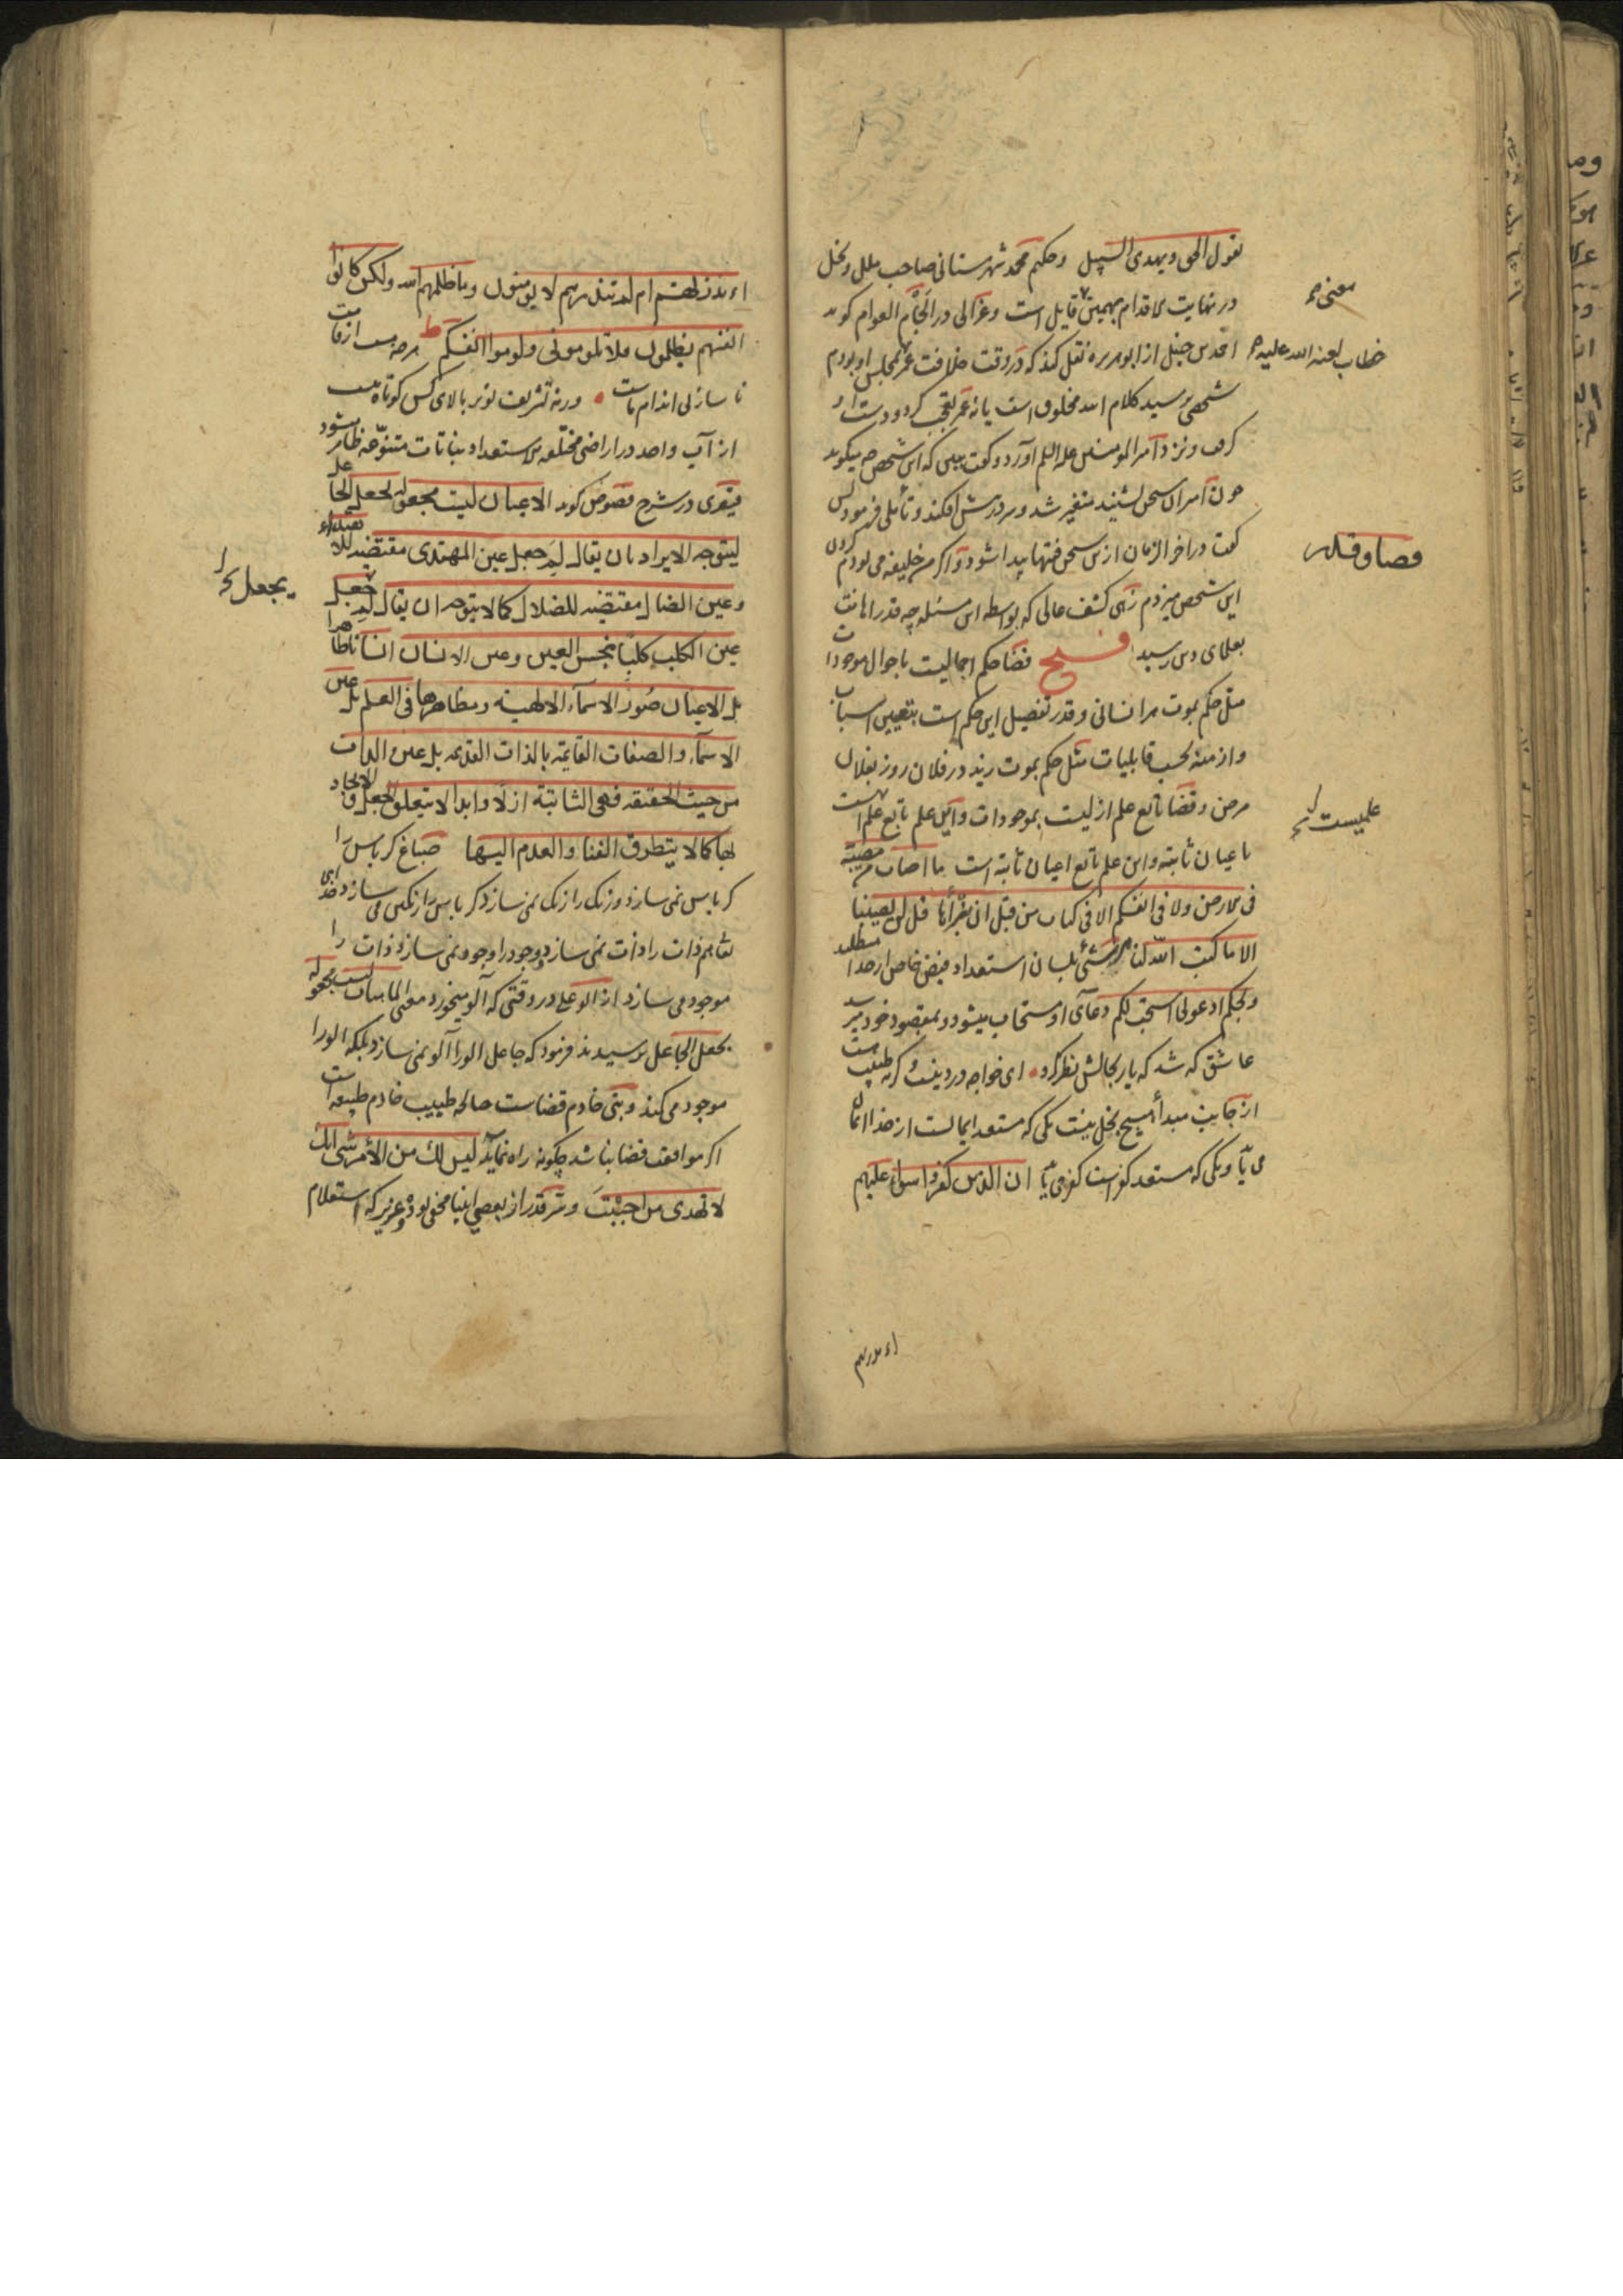 یقول الحق و یهدی السبیل و حکیم محمد شهرستانی صاحب ملل و نحل
در نهایت الاقدام بهمین قایل است و غزالی در الجام العوام گوید
معنی
احمد بن حنبل از ابو هریره نقل کند که در وقت خلافت عمر بمجلس او بودم
خطاب لعنه الله علیه
شخصی پرسید کلام الله مخلوق است یا نه عمر تعجب کرد و دست او
گرفت و نزد امیر المومنین علیه السلم آورد و گفت ببین که این شخص چه میگوید
چون امیر آن سخن شنید متغیر شد و سر در پیش افکند و تأملی فرمود پس
گفت در اخر الزمان ازین سخن فتنها پیدا شود و اگر من خلیفه می بودم گردن
این شخص میزدم زهی کشف عالی که بواسطه این مسئله چه قدر اهانت
بعلمای دین رسید فتح قضا حکم اجمالیست باحوال موجودات
قضا و قدر
مثل حکم بموت هر انسانی و قدر تفصیل این حکم است بتعیین اسباب
و ازمنه بحسب قابلیات مثل حکم بموت زید در فلان روز بفلان
مرض و قضا تابع علم ازلیست بموجودات و این علم تابع علم است
علمیست
باعیان ثابته و این علم تابع اعیان ثابته است ما اصاب من مصیبة
فی الارض و لا فی انفسکم الا فی کتاب من قبل ان نبرأها قل لن یصیبنا
الا ما کتب الله لنا هر شئ بلسان استعداد فیض خاص از خدا میطلبد
و بحکم ادعونی استجب لکم دعای او مستجاب میشود و بمقصود خود میرسد
عاشق که شد که یار بحالش نظر نکرد ای خواجه درد نیست و گرنه طبیب هست
از جانب مبدأ هیچ بخل نیست یکی که مستعد ایمانست از خدا ایمان
می یابد و یکی که مستعد کفر است کفر می یابد ان الذین کفروا سواء علیهم
ءانذرتهم
ءانذرتهم ام لم تنذرهم لا یومنون و ما ظلمهم الله ولکن کانوا
انفسهم یظلمون فلا تلومونی و لوموا انفسکم هرچه هست از قامت
ناساز بی اندام ماست ورنه تشریف تو بر بالای کس کوتاه نیست
از آب واحد در اراضی مختلفة الاستعداد نباتات متنوعه ظاهر میشود
قیصری در شرح فصوص گوید الاعیان لیست مجعولة بجعل الجاعل
لیتوجه الایراد بان یقال لم جعل عین المهتدی مقتضیة للاهتداء
و عین الضال مقتضیة للضلال کما لا یتوجه ان یقال لم جعل
بجعل
عین الکلب کلبا نجس العین و عین الانسان انسانا طاهرا
بل الاعیان صور الاسماء الالهیة و مظاهرها فی العلم بل عین
الاسماء و الصفات القایمة بالذات القدیمه بل عین الذات
من حیث الحقیقه فهی الثابتة ازلا و ابدا لا یتعلق الجعل و الایجاد
بها کما لا یتطرق الفناء و العدم الیها صباغ کرباس را
کرباس نمی سازد و رنگ را رنگ نمی سازد کرباس را رنگین می سازد خدای
تعالی هم ذات را ذات نمی سازد و وجود را وجود نمی سازد ذات را
موجود می سازد از ابو علی در وقتی که آلو میخورد معنی الماهیات لیست مجعوله
بجعل الجاعل پرسیدند فرمود که جاعل الو را آلو نمی سازد بلکه الو را
موجود می کند و نبی خادم قضاست چنانچه طبیب خادم طبیعه است
اگر موافقت قضا نباشد چگونه راه نماید لیس لک من الأمر شئ انک
لا تهدی من احببت و سرّ قدر از بعضی انبیا مخفی بود و عزیر که استعلام